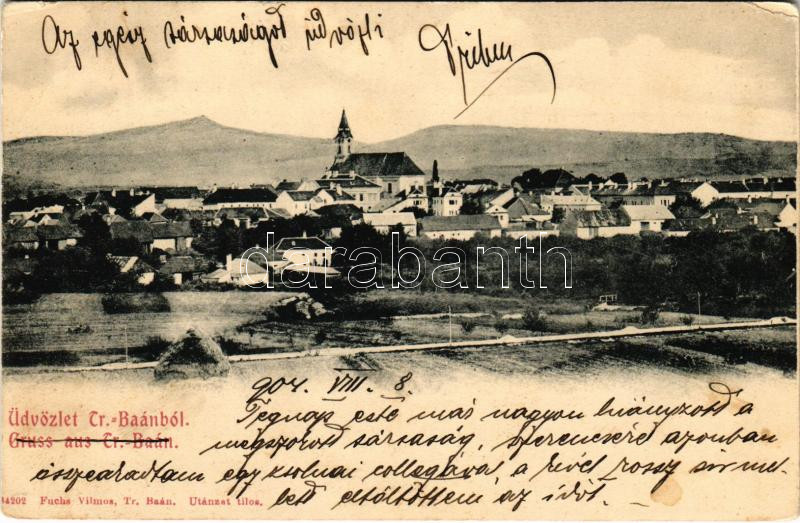 Az egész társaságot üdvözli
darabanth
904. VIII. 8.
Üdvözlet Tr.-Baánból.
Gruss aus Tr.-Baán.
Tegnap este már nagyon hiányzott a
megszokott társaság, szerencsére azonban
összeakadtam egy zsolnai collegával, a kivel rossz sör mel-
lett eltöltöttem az időt.
14202 Fuchs Vilmos, Tr. Baán. Utánzat tilos.